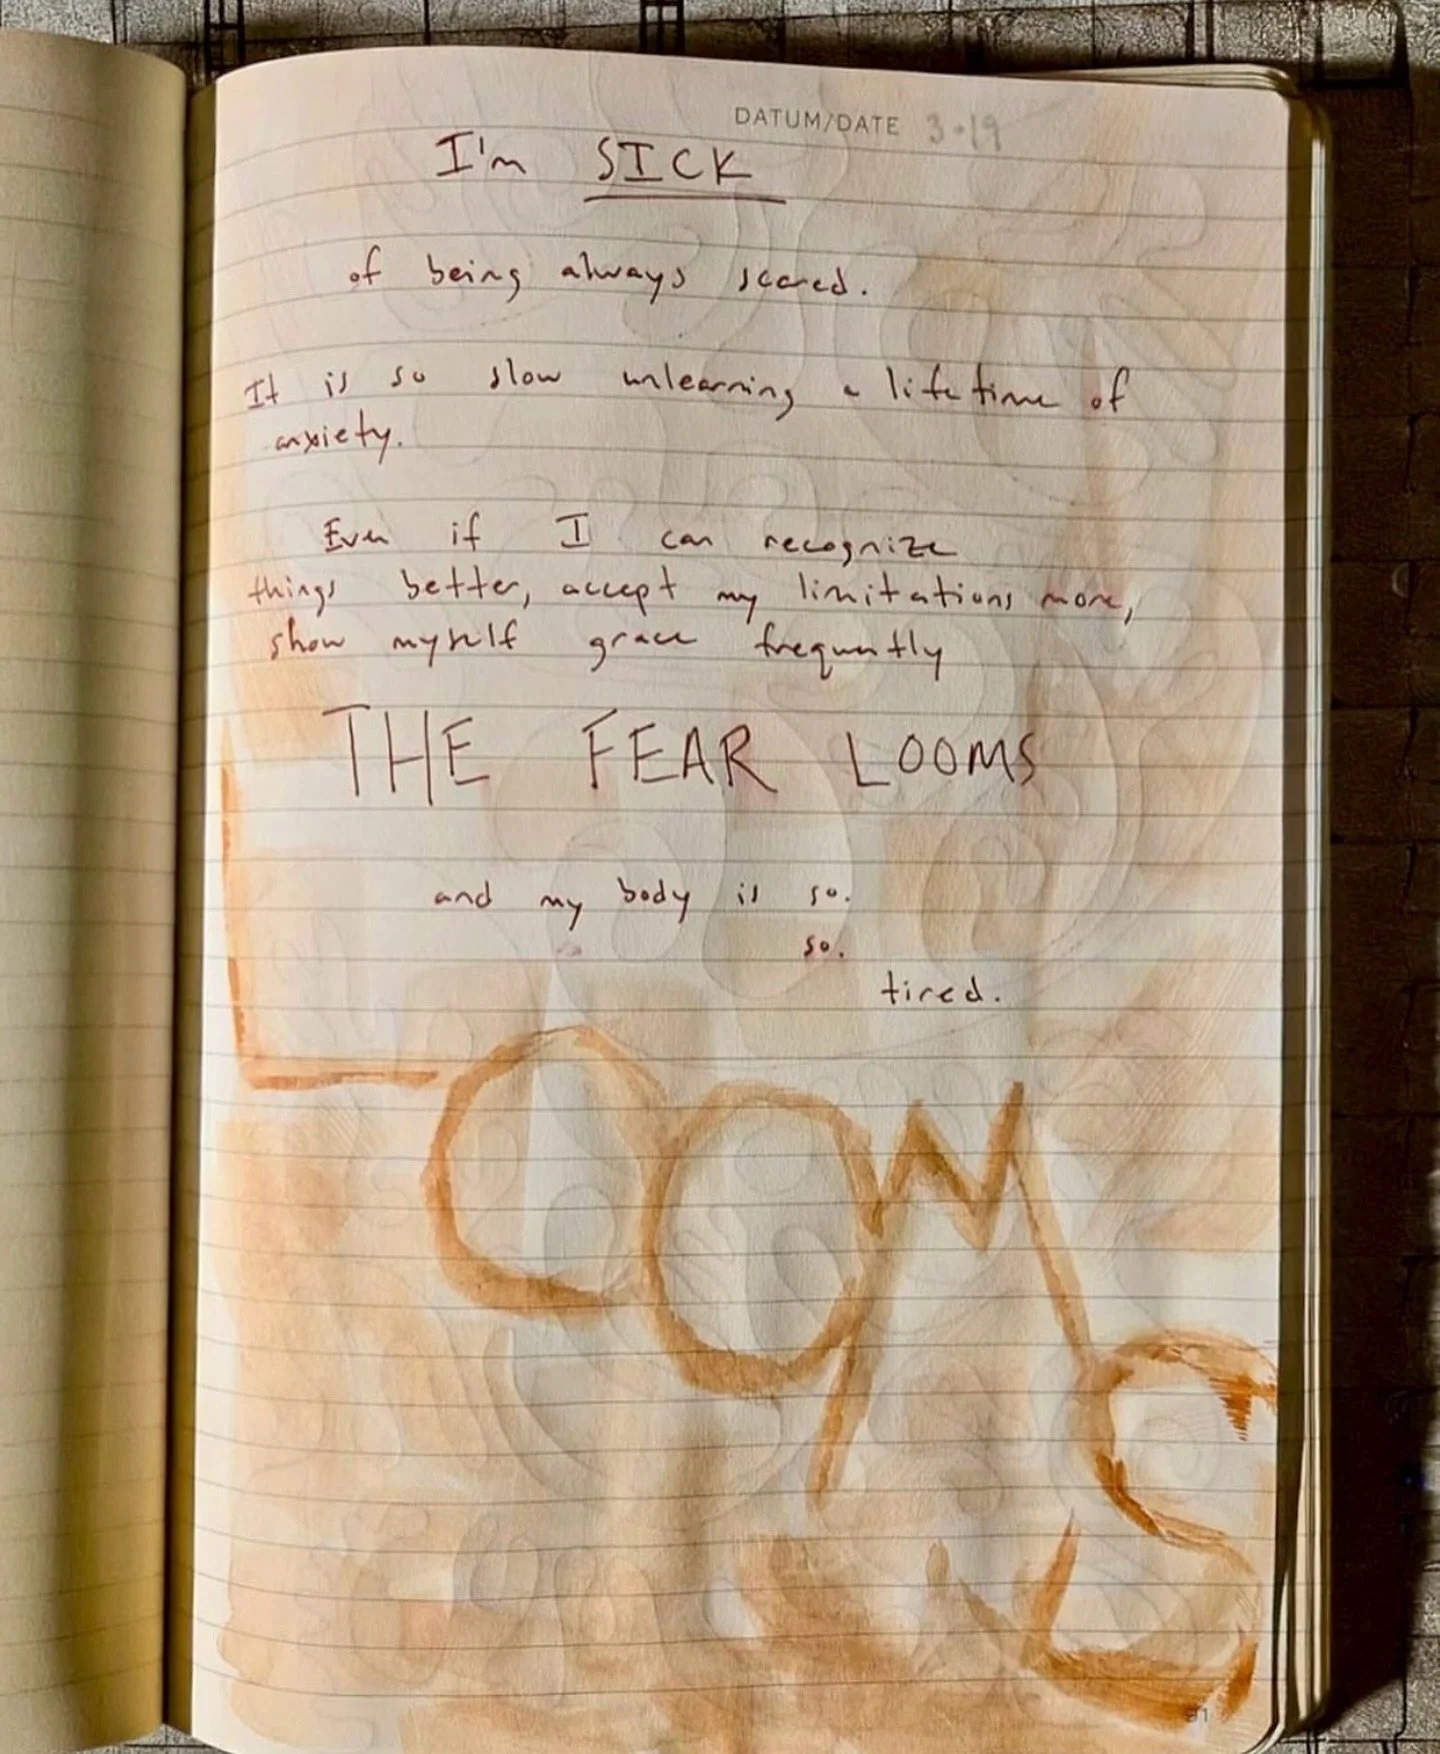 DATUM/DATE 3.19
I'm SICK
of being always scared.
It is so slow unlearning a lifetime of
anxiety.
Even if I can recognize
things better, accept my limitations more,
show myself grace frequently
THE FEAR LOOMS
and my body is so.
so.
tired.
LOOMS
91